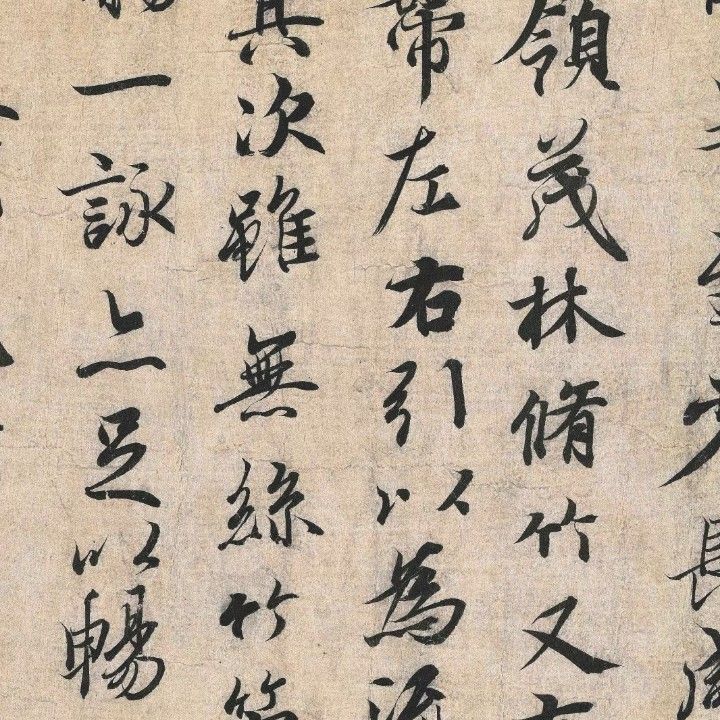 至少長咸
領茂林脩竹又
帶左右引以為流
其次雖無絲竹管
一詠亦足以暢